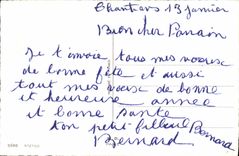 13 janvier
Bien cher Parrain
Je t'envoie tous mes voeux
de bonne fête et aussi
tout mes voeux de bonne
et heureuse année
et bonne santé
ton petit filleul Bernard
Bernard